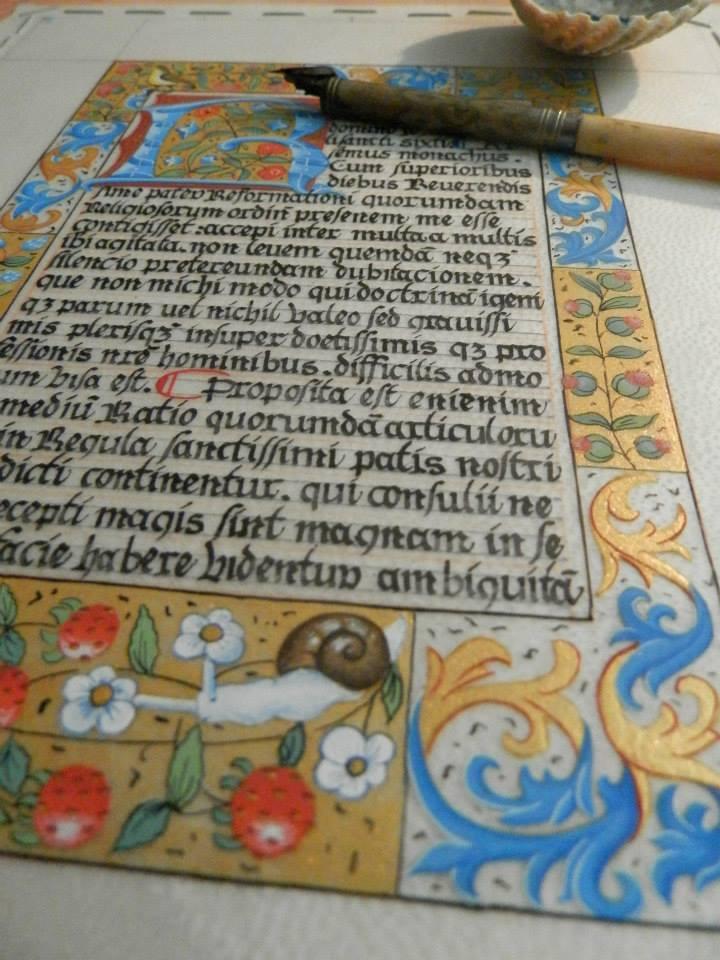 domino
sancti sixti
semus monachus.
Cum superioribus
diebus Reverendis
sime pater Reformationi quorumdam
Religiosorum ordiñ presenem me esse
contigisset: accepi inter multa a multis
ibi agitata. non levem quemdã neqʒ
silencio pretereundam dubitacionem.
que non michi modo qui doctrina igeni
qʒ parum vel nichil valeo sed gravissi
mis plerisqʒ insuper doctissimis qʒ pro
fessionis nr̃e hominibus. difficilis admo
um visa est. ¶ Proposita est enienim
mediũ Ratio quorumdã articuloru
in Regula sanctissimi patis nostri
dicti continentur. qui consulii ne
ecepti magis sint magnam in se
facie habere videntur ambiguitã